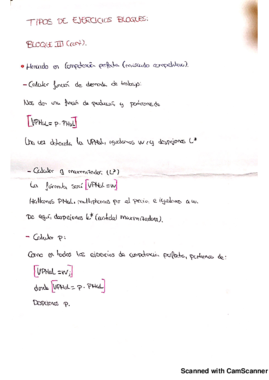 TIPOS DE EJERCICIOS BLOQUES:
BLOQUE III (cont).
* Mercado en Competencia perfecta (mercado competitivo).
- Calcular función de demanda de trabajo:
Nos dan una función de producción y partiremos de
[VPMgL = p · PMgL]
Una vez obtenida la VPMgL igualamos w, y despejamos L*
- Calcular q maximizadora (L*)
La fórmula será [VPMgL = w]
Hallamos PMgL, multiplicamos por el precio e igualamos a w.
De aquí despejamos L* (cantidad maximizadora).
- Calcular p:
Como en todos los ejercicios de competencia perfecta, partimos de:
[VPMgL = w,]
donde [VPMgL = p · PMgL]
Despejamos p.
Scanned with CamScanner